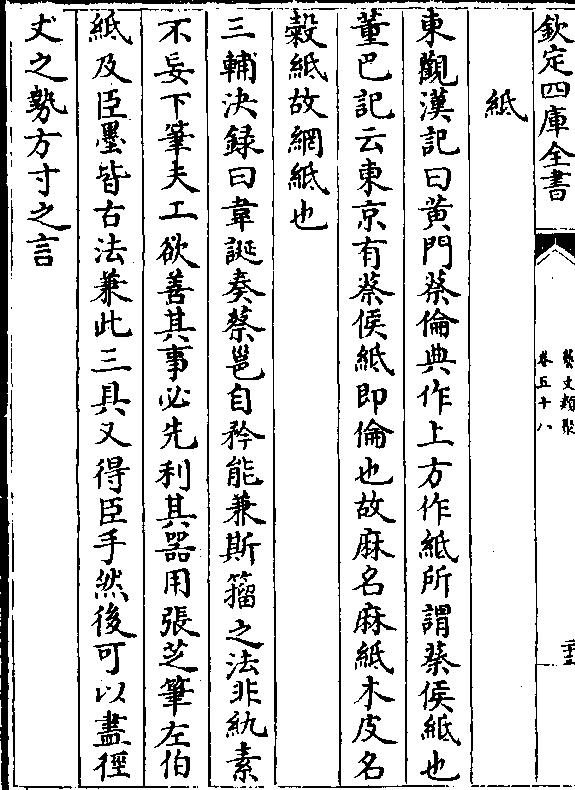 欽定四庫全書
藝文類聚
卷五十八
紙
東觀漢記曰黄門蔡倫典作上方作紙所謂蔡侯紙也
董巴記云東京有蔡侯紙即倫也故麻名麻紙木皮名
榖紙故網紙也
三輔决録曰韋誕奏蔡邕自矜能兼斯籀之法非紈素
不妄下筆夫工欲善其事必先利其器用張芝筆左伯
紙及臣墨皆古法兼此三具又得臣手然後可以盡徑
丈之勢方寸之言